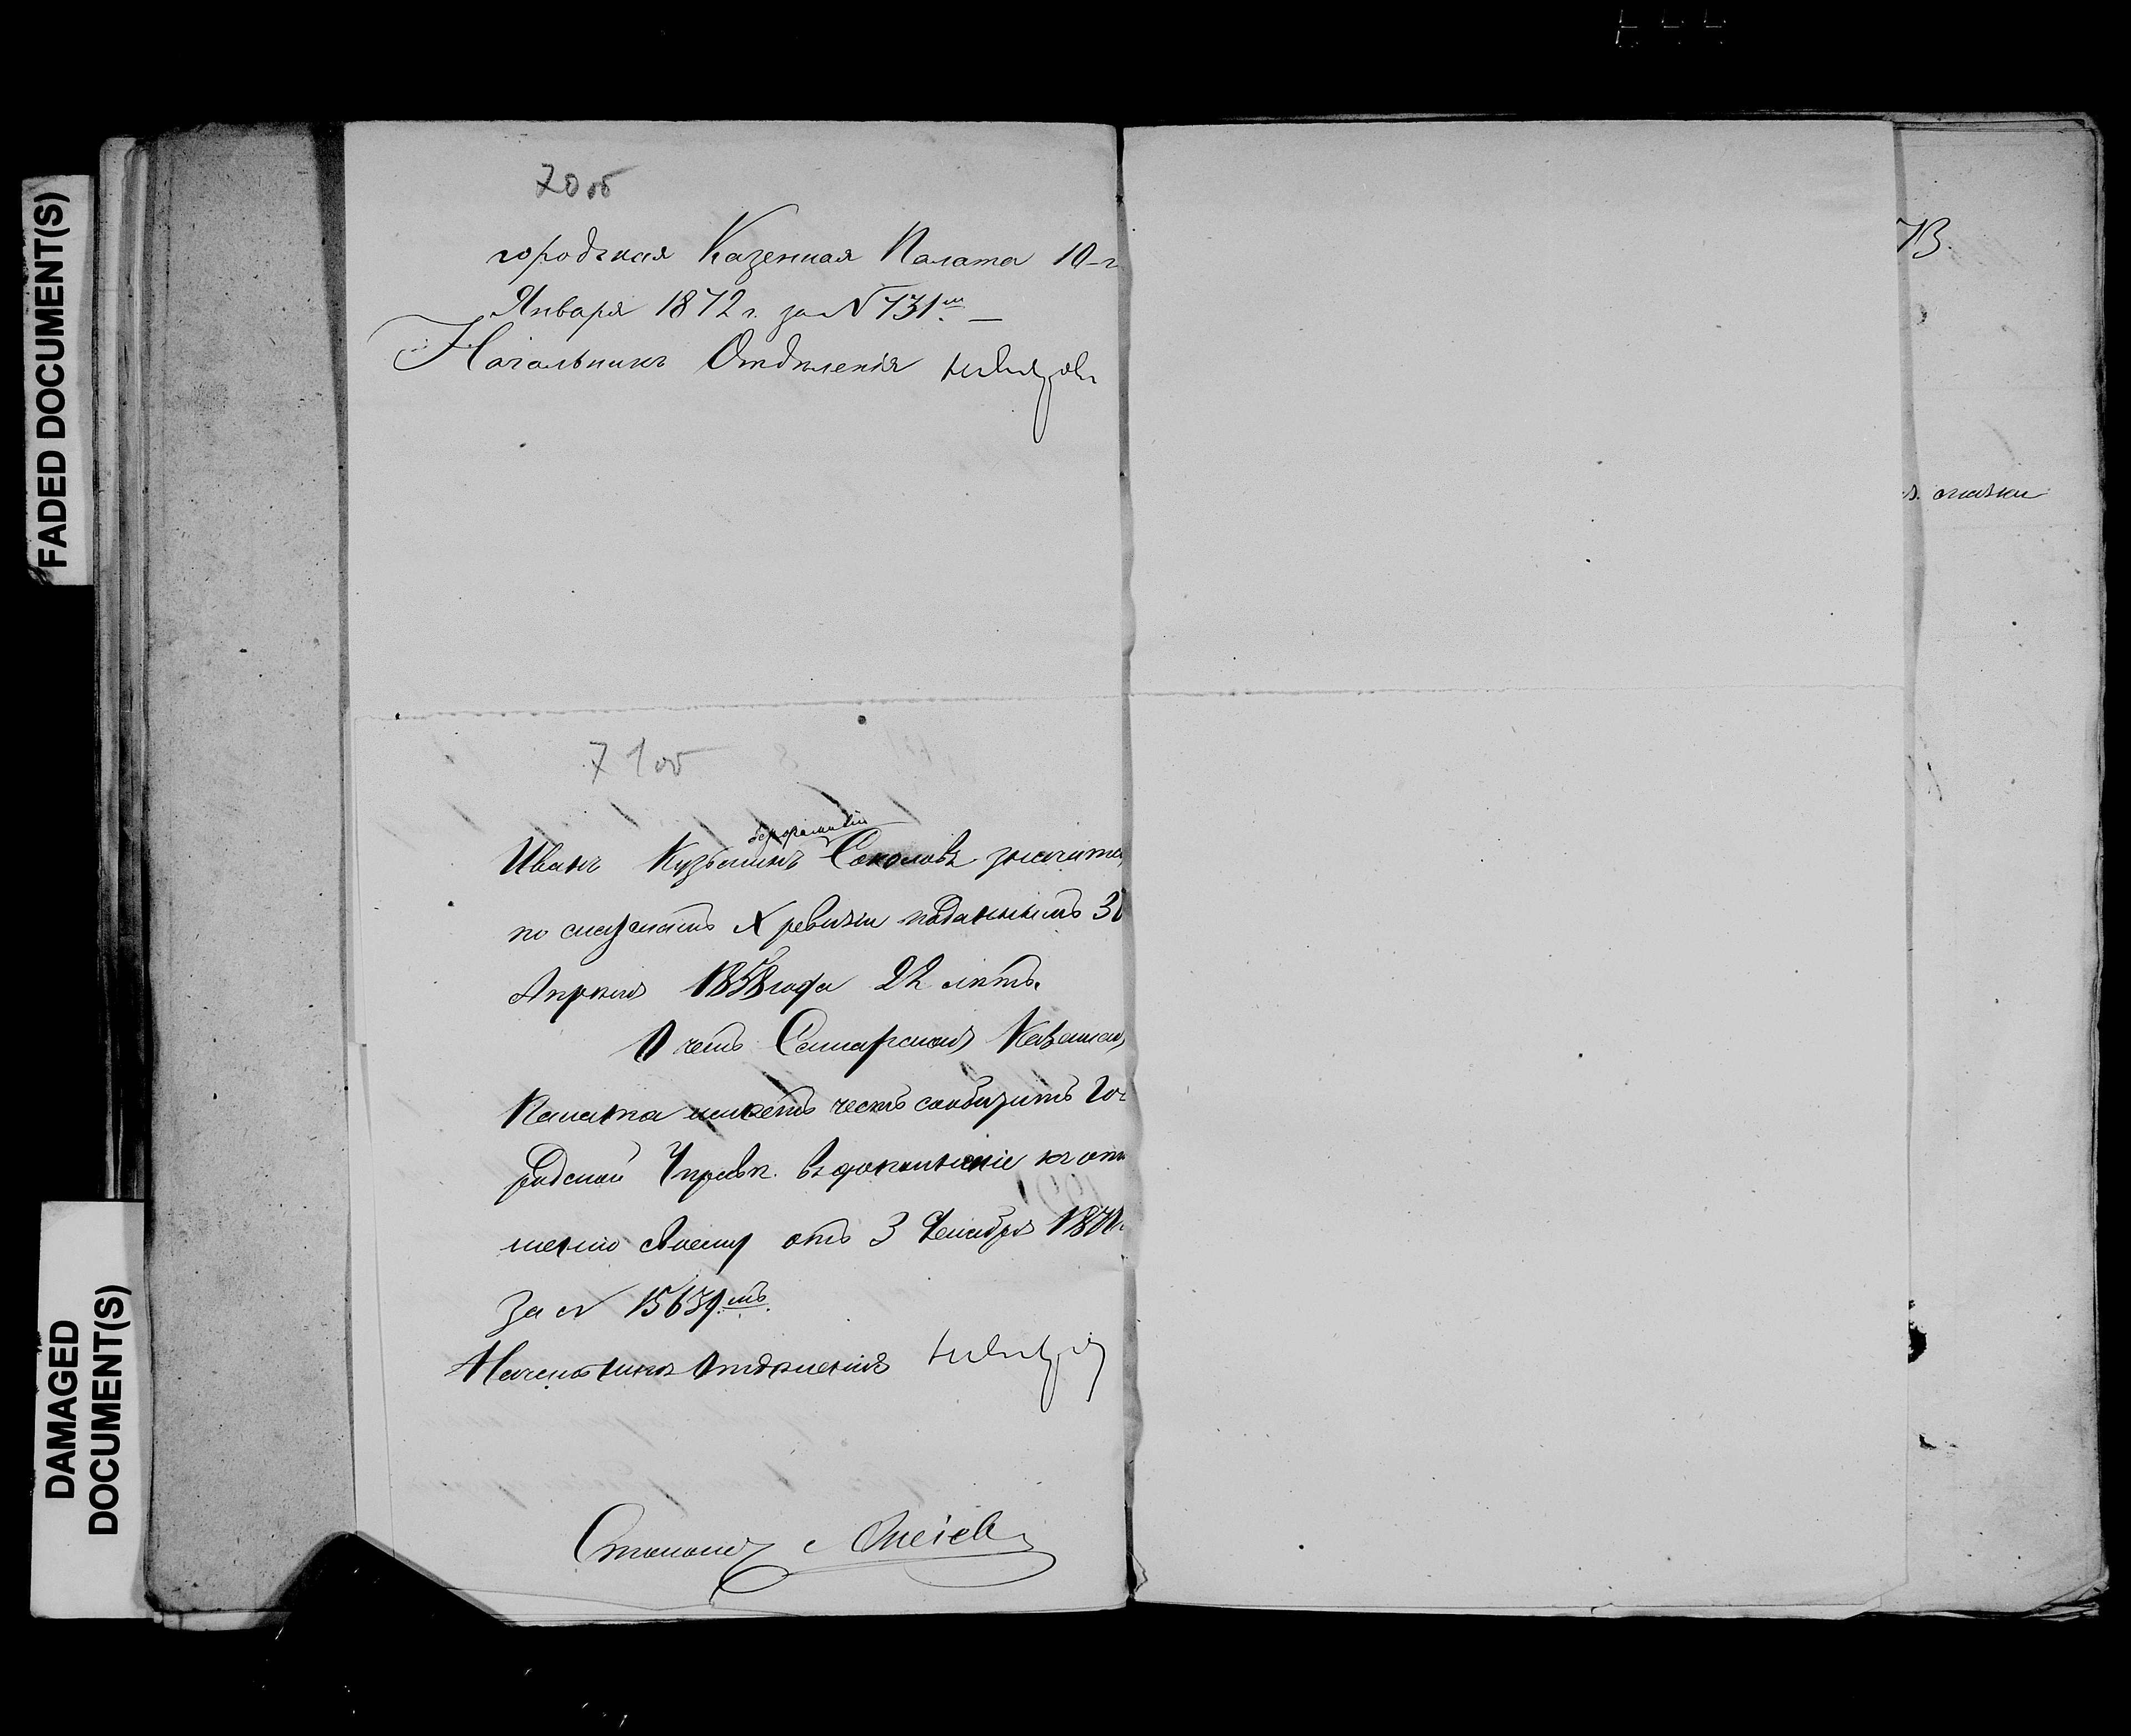 FADED DOCUMENT(S)
DAMAGED
DOCUMENT(S)
70 об
городская Казенная Палата 10-г
Января 1872 г. за № 731м
Начальникъ Отдѣленія
71 об
Иванъ Кузьминъ Соколовъ значится
по сказкамъ X ревизіи поданнымъ 30
Апрѣля 1858 года 22 лѣтъ.
О чемъ Самарская Казенная
Палата имѣетъ честь сообщить Го
родской Управѣ въ дополненіе къ отно
шенію своему отъ 3 Декабря 1871 г.
За № 15639.мъ
Начальникъ Отдѣленія
73.
сказки